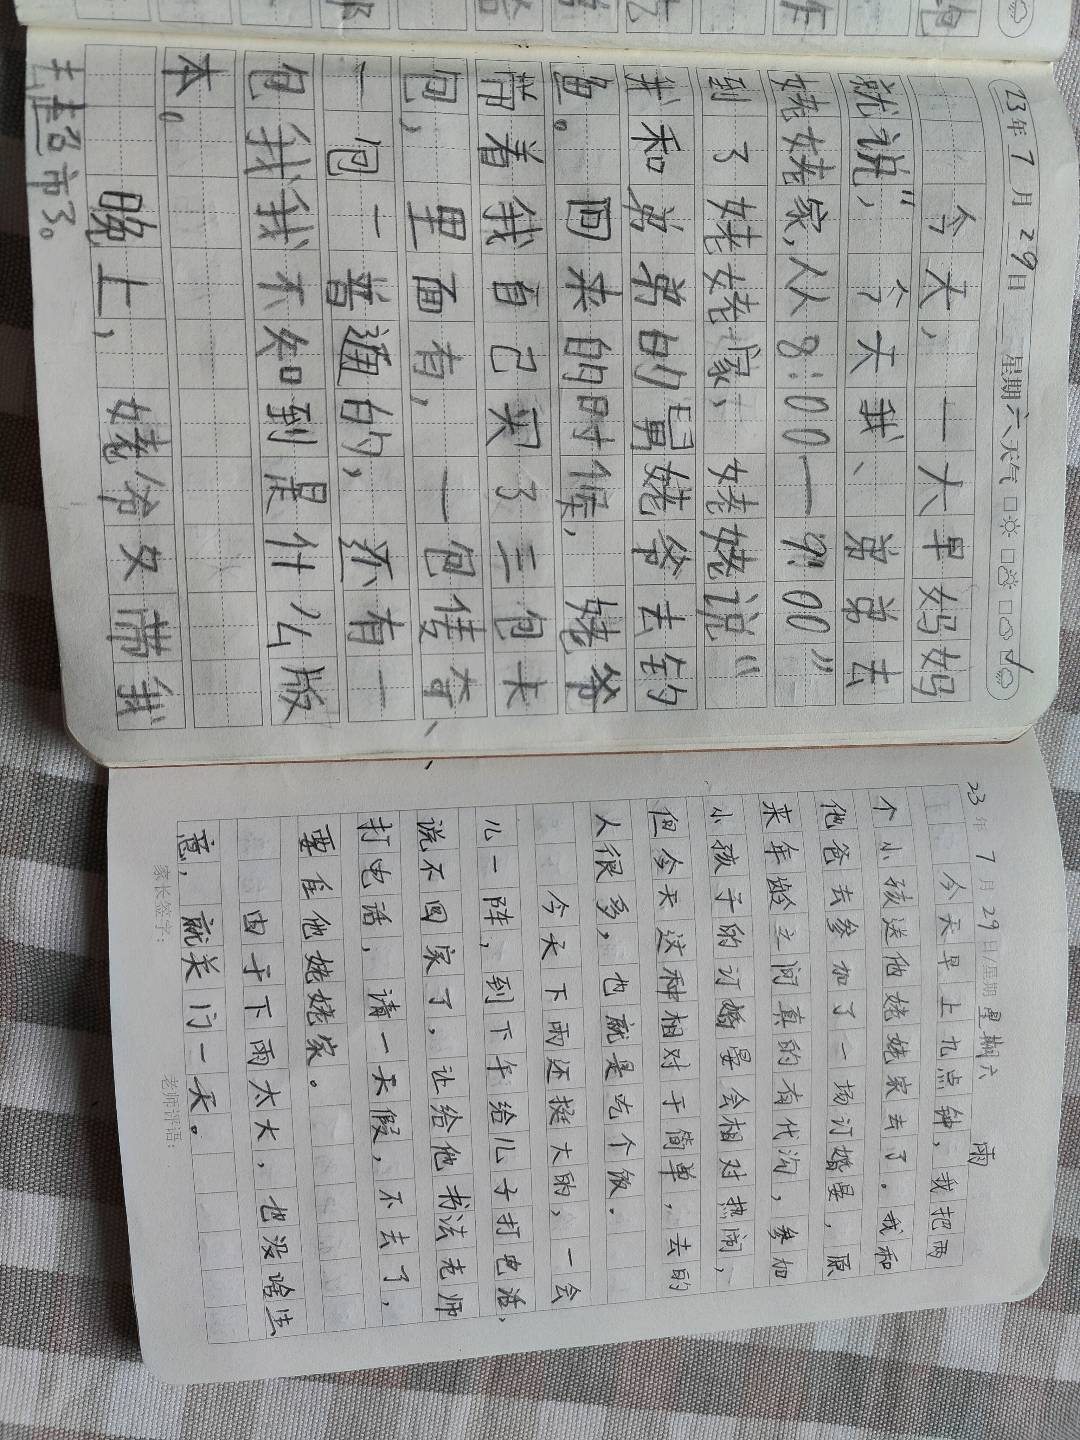 23年7月29日 星期六 天气
今天，一大早妈妈
就说，“今天我、常常去
姥姥家，从8:00—9:00”
到了姥姥家，姥姥说“
我和弟弟的舅姥爷去钓
鱼。回来的时候，姥爷
带着我自己买了三包大
包，里面有，一包传奇、
一包一普通的，还有一
包我我不知到是什么版
本。
晚上，姥爷又带我
去超市了。
23年7月29日/星期 星期六 雨
今天早上九点钟，我把两
个小孩送他姥姥家去了。我和
他爸去参加了一场订婚宴，原
来年龄之间真的有代沟，参加
小孩子的订婚宴会相对热闹，
但今天这种相对于简单，去的
人很多，也就是吃个饭。
今天下雨还挺大的，一会
儿一阵，到下午给儿子打电话，
说不回家了，让给他书法老师
打电话，请一天假，不去了，
要住他姥姥家。
由于下雨太大，也没啥生
意，就关门一天。
家长签字：
老师评语：